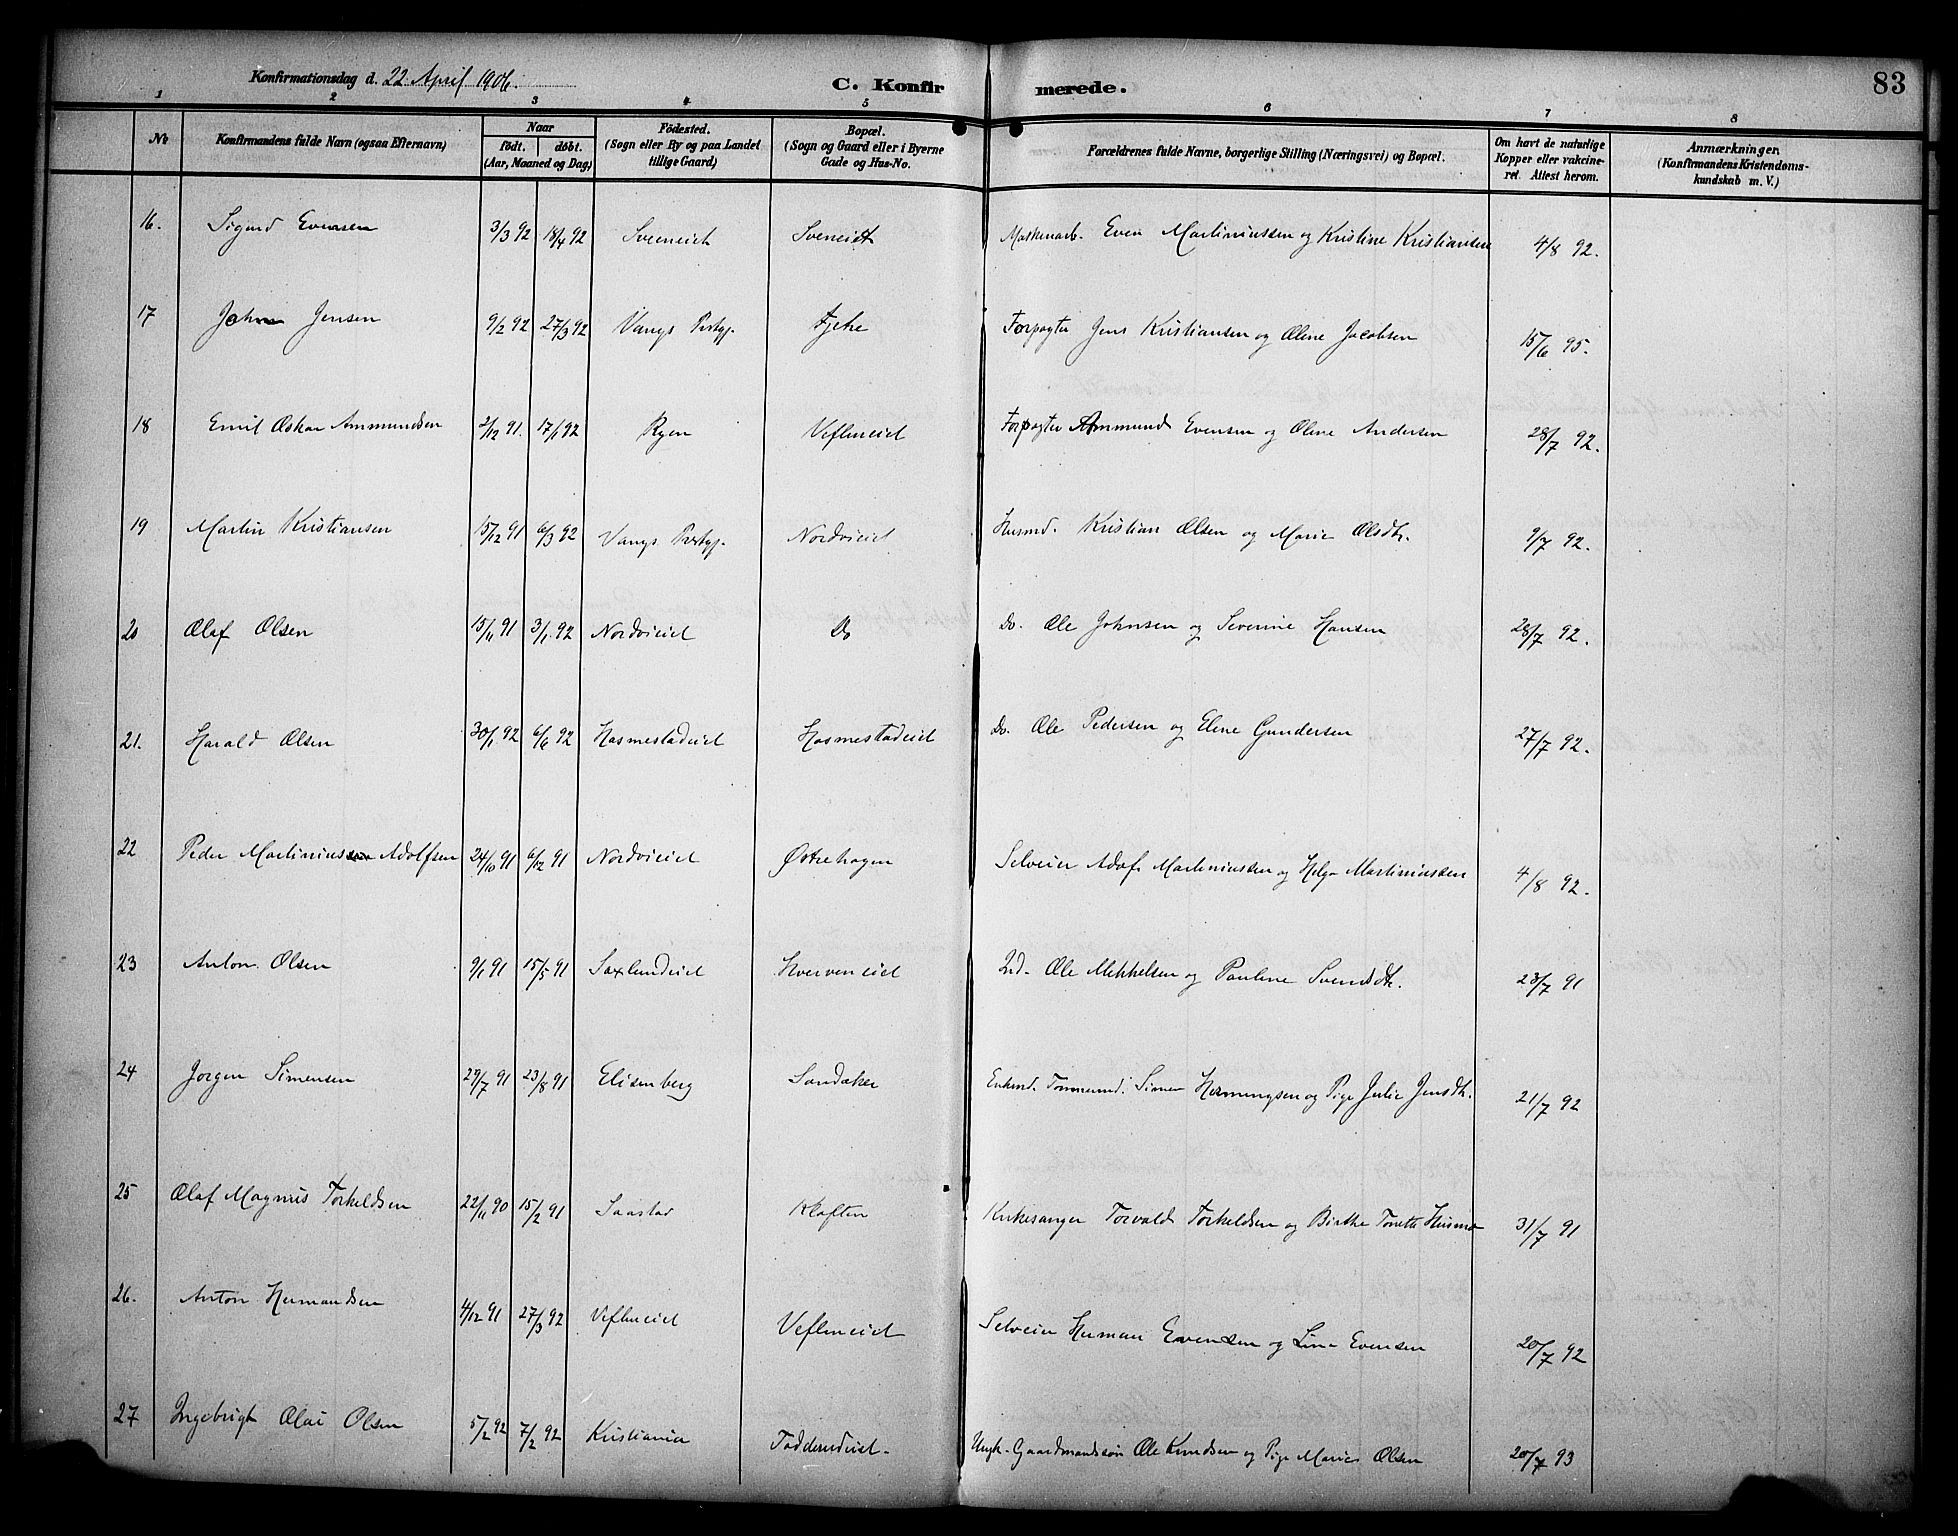 83
Konfirmationsdag d. 22. April 1906.
C. Konfirmerede.
1 2 3 4 5 6 7 8
No Konfirmandens fulde Navn (ogsaa Efternavn)
Naar født. døbt. (Aar, Maaned og Dag)
Fødested. (Sogn eller By og paa Landet tillige Gaard)
Bopæl. (Sogn og Gaard eller i Byerne Gade og Hus-No.
Forældrenes fulde Navne, borgerlige Stilling (Næringsvei) og Bopæl.
Om havt de naturlige Kopper eller vakcineret. Attest herom.
Anmærkninger. (Konfirmandens Kristendomskundskab m. V.)
16. Sigurd Evensen 3/3 92 18/4 92 Sveneiet Sveneiet Maskenarb. Even Martiniussen og Kristine Kristiansen 4/8 92.
17 Johan Jensen 9/2 92 27/3 92 Vangs Prstgj. Fjetre Forpagter Jens Kristiansen og Olene Jacobsen 15/6 95.
18 Emil Oskar Ammundsen 2/12 91. 17/1 92 Ryen Veflneiet Forpagter Ammund Evensen og Olene Andersen 28/7 92.
19 Martin Kristiansen 15/12 91 6/3 92 Vangs Prstgj. Nordvieiet Husmd. Kristian Olsen og Marie Olsdtr. 9/7 92.
20 Olaf Olsen 15/11 91 3/1 92 Nordvieiet Do Do. Ole Johnsen og Severine Hansen 28/7 92.
21. Harald Olsen 30/1 92 6/6 92 Hosmestadeiet Hosmestadeiet Do. Ole Pedersen og Elene Gundersen 27/7 92.
22 Peder Martinius Adolfsen 24/10 91 6/12 91 Nordvieiet Østrehagen Selveier Adolf Martiniussen og Helga Martiniussen 4/8 92.
23 Anton Olsen 9/1 91 15/5 91 Saxlundeiet Hverveneiet Ind. Ole Mikkelsen og Pauline Svendsdtr. 23/7 91
24 Jørgen Simensen 29/7 91 23/8 91 Elisenberg Sandaker Enkmd. Tømmermd. Simen Hemmingsen og Pige Julie Jensdtr. 21/7 92
25 Olaf Magnus Torkeldsen 22/11 90 15/2 91 Saastad Kløften Kirkesanger Torvald Torkeldsen og Birthe Tonette Husmo 31/7 91
26. Anton Hermandsen 4/12 91 27/3 92 Veflneiet Veflneiet Selveier Herman Evensen og Lina Evensen 20/7 92
27 Ingebrigt Olai Olsen 5/2 92 7/2 92 Kristiania Toddemdeiet Ungk. Gaardmandssøn Ole Knudsen og Pige Marie Olsen 20/7 93